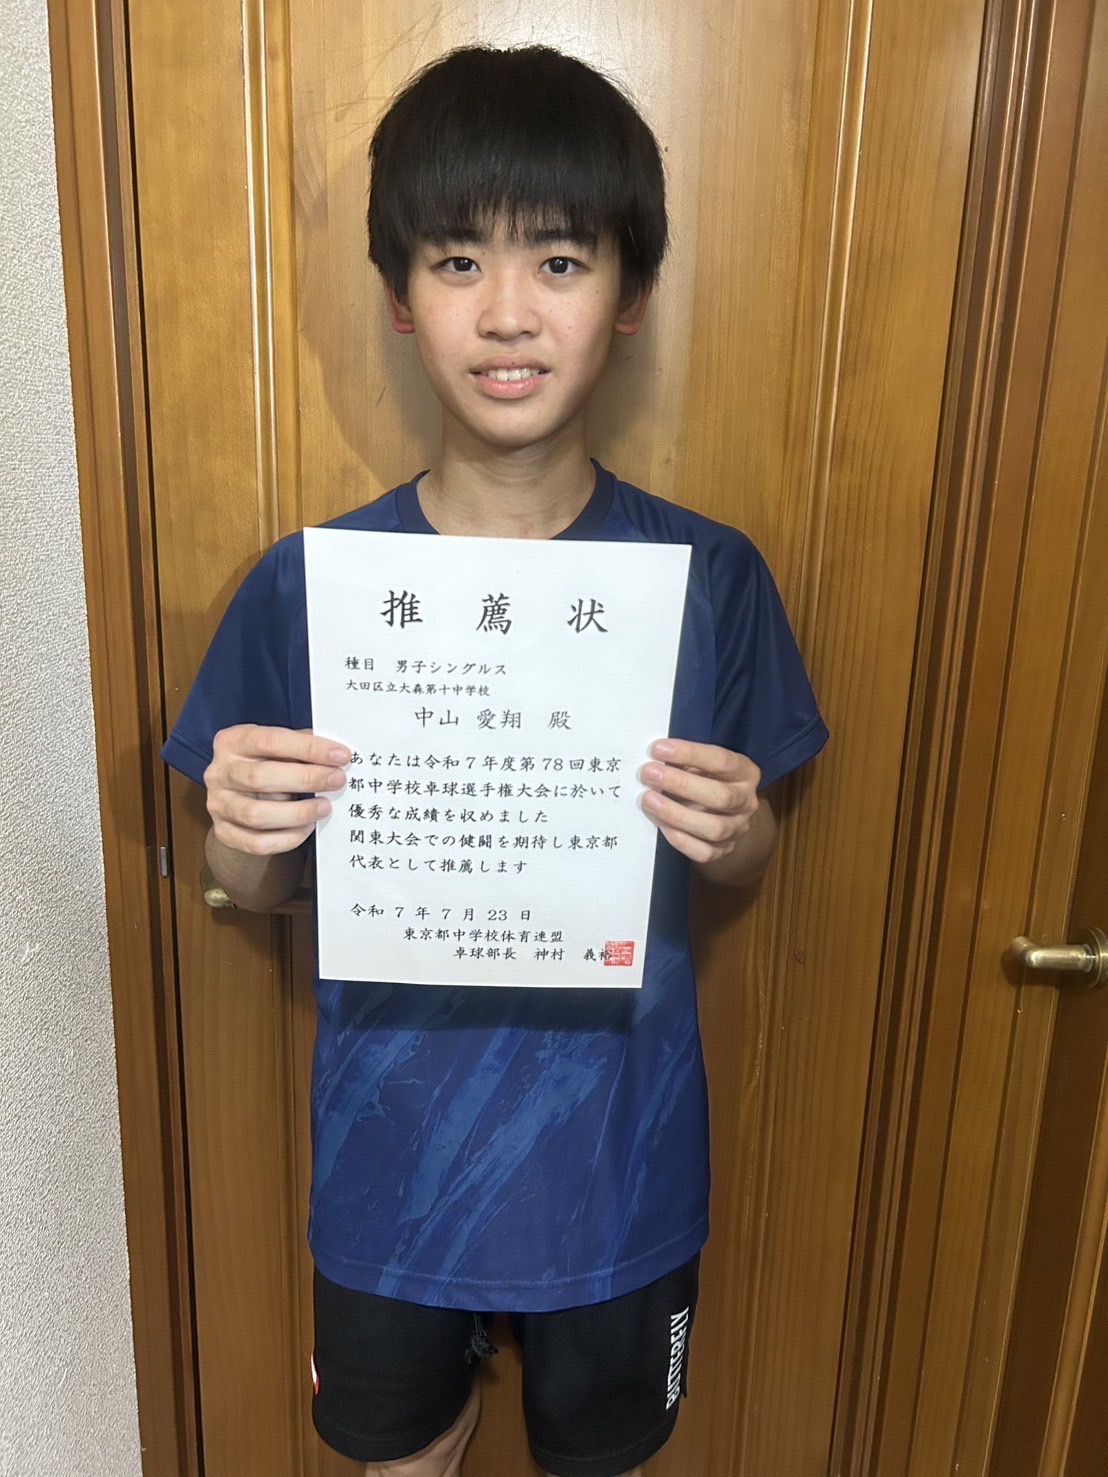 推薦状
種目 男子シングルス
大田区立大森第十中学校
中山 愛翔 殿
あなたは令和7年度第78回東京
都中学校卓球選手権大会に於いて
優秀な成績を収めました
関東大会での健闘を期待し東京都
代表として推薦します
令和 7 年 7 月 23 日
東京都中学校体育連盟
卓球部長 神村 義裕
BUTTERFLY